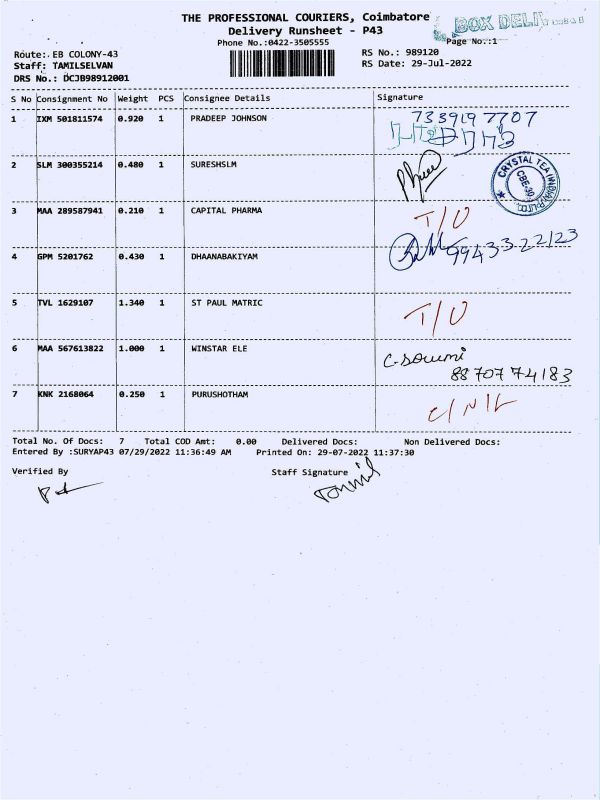 THE PROFESSIONAL COURIERS, Coimbatore
BOX DELI
Delivery Runsheet - P43
Phone No.:0422-3505555
Page No.:1
Route: EB COLONY-43
RS No.: 989120
Staff: TAMILSELVAN
RS Date: 29-Jul-2022
DRS No.: DCJB98912001
S No Consignment No Weight PCS Consignee Details Signature
1 IXM 501811574 0.920 1 PRADEEP JOHNSON 7339197707
2 SLM 300355214 0.480 1 SURESHSLM
CRYSTAL TEA (INDIA)
CBE-30
3 MAA 289587941 0.210 1 CAPITAL PHARMA T/O
4 GPM 5201762 0.430 1 DHAANABAKIYAM 9943322123
5 TVL 1629107 1.340 1 ST PAUL MATRIC T/O
6 MAA 567613822 1.000 1 WINSTAR ELE C-Soumi
8870774183
7 KNK 2168064 0.250 1 PURUSHOTHAM C/N/L
Total No. Of Docs: 7 Total COD Amt: 0.00 Delivered Docs: Non Delivered Docs:
Entered By :SURYAP43 07/29/2022 11:36:49 AM Printed On: 29-07-2022 11:37:30
Verified By Staff Signature